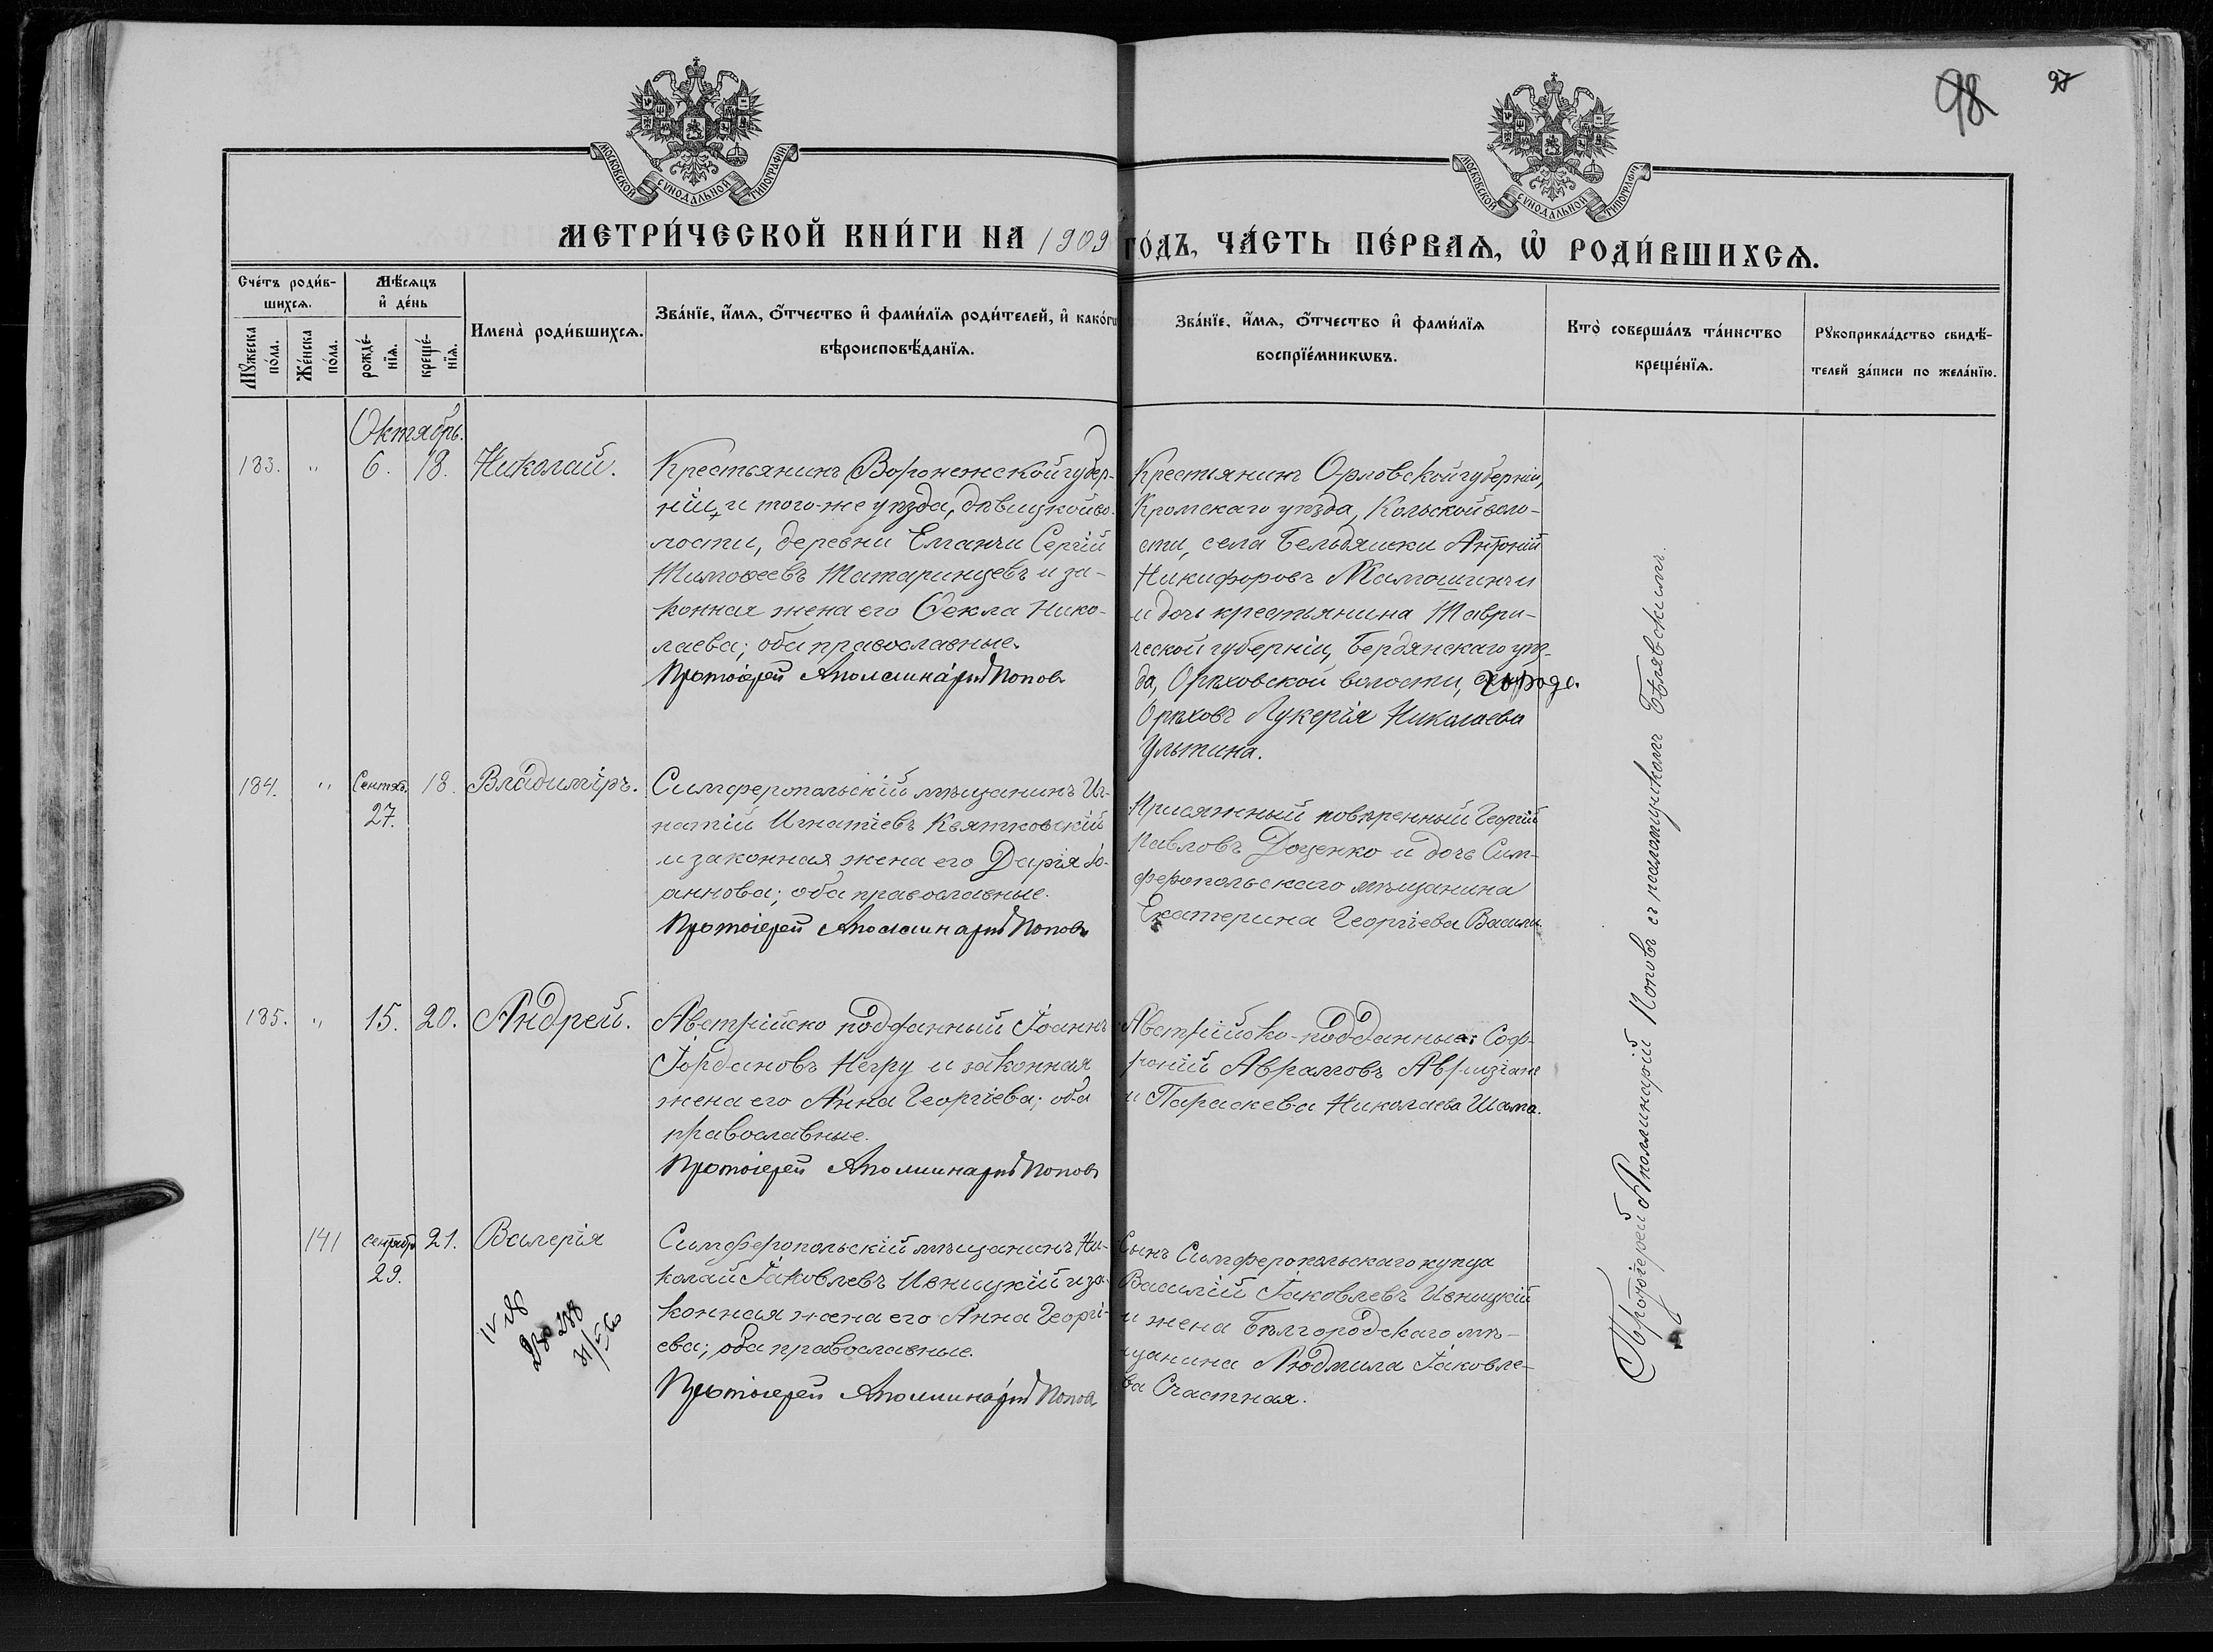 98
97
МОСКОВСКОЙ СѴНОДАЛЬНОЙ ТИПОГРАФИИ
МОСКОВСКОЙ СѴНОДАЛЬНОЙ ТИПОГРАФИИ
МЕТРИ́ЧЕСКОЙ КНИ́ГИ НА 1909 ГО́ДЪ, ЧА́СТЬ ПЕ́РВАѦ, Ѡ҆ РОДИ́ВШИХСѦ.
Сче́тъ роди́в-
шихсѧ.
Мꙋ́жеска
по́ла.
Же́нска
по́ла.
Мѣ́сѧцъ
и҆ де́нь
рожде́-
нїѧ.
креще́-
нїѧ.
Имена̀ роди́вшихсѧ.
Зва́нїе, и҆́мѧ, ѻ҆́тчество и҆ фами́лїѧ роди́телей, и҆ како́гѡ
вѣроисповѣ́данїѧ.
Зва́нїе, и҆́мѧ, ѻ҆́тчество и҆ фами́лїѧ
воспрїе́мникѡвъ.
Кто̀ соверша́лъ та́инство
креще́нїѧ.
Рꙋкоприкла́дство свидѣ́-
телей за́писи по жела́нїю.
Октябрь.
183. " 6. 18. Николай.
Крестьянинъ Воронежской губер-
ніи, и того-же уѣзда, Дѣвицкой во-
лости, деревни Еманчи Сергій
Тимоѳеевъ Татаринцевъ и за-
конная жена его Ѳекла Нико-
лаева; оба православные.
Протоіерей Аполлинарій Поповъ
Крестьянинъ Орловской губерніи,
Кромскаго уѣзда, Кольской воло-
сти, села Бельдяшки Антоній
Никифоровъ Мамошинъ и
и дочь крестьянина Таври-
ческой губерніи, Бердянскаго уѣз-
да, Орѣховской волости, города
Орѣховъ Лукерія Николаева
Ультина.
184. " Сентяб. 18. Владиміръ.
27.
Симферопольскій мѣщанинъ Иг-
натій Игнатіевъ Квятковскій
и законная жена его Дарія Іо-
аннова; оба православные.
Протоіерей Аполлинарій Поповъ
Присяжный повѣренный Георгій
Павловъ Доценко и дочь Сим-
феропольскаго мѣщанина
Екатерина Георгіева
185. " 15. 20. Андрей.
Австрійско подданный Іоаннъ
Іордановъ Негру и законная
жена его Анна Георгіева; оба
православные.
Протоіерей Аполлинарій Поповъ
Австрійско-подданные: Соф-
роній Аврамовъ
и Параскева Николаева Шама.
141 Сентябр. 21. Валерія
29.
Симферопольскій мѣщанинъ Ни-
колай Іаковлевъ Ивницкій и за-
конная жена его Анна Георгі-
ева; оба православные.
Протоіерей Аполлинарій Поповъ
Сынъ Симферопольскаго купца
Василій Іаковлевъ Ивницкій
и жена Бѣлгородскаго мѣ-
щанина Людмила Іаковле-
ва Счастная.
Протоіерей Аполлинарій Поповъ съ псаломщикомъ Бѣлявскимъ.